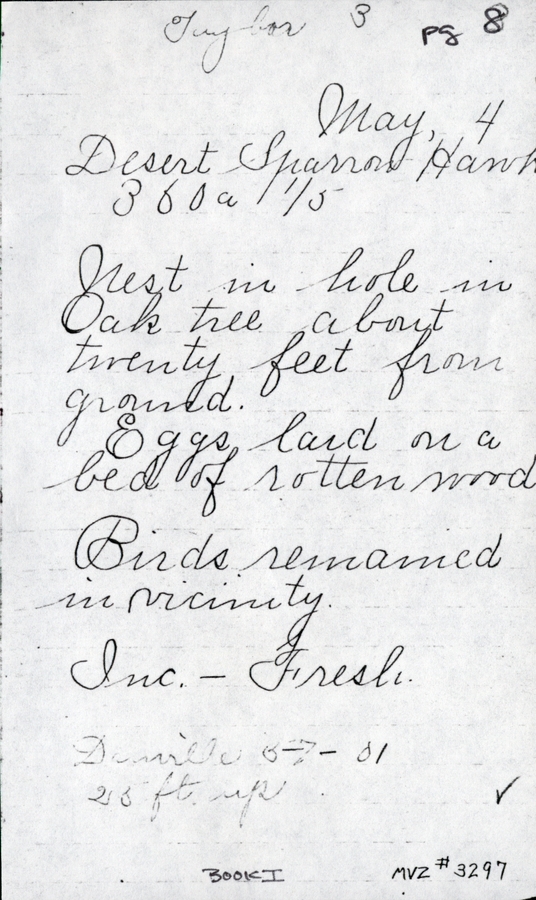 Taylor 3 pg 8
May, 4
Desert Sparrow Hawk
360a 1/5
Nest in hole in
Oak tree about
twenty feet from
ground.
Eggs laid on a
bed of rotten wood
Birds remained
in vicinity.
Inc. - Fresh.
Danville 5-7-01
25 ft. up
BOOK I MVZ #3297